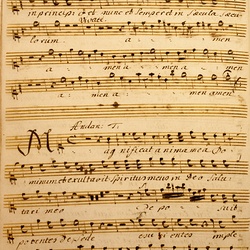 in principio et nunc et semper et in saecula saecu
Vivace.
lorum a men
a men a men a
a men a men amen
Andan. T.
Magnificat anima mea Do
minum et exultavit Spiritus meus in Deo Salu
tari meo De po suit
potentes de sede esurientes imple